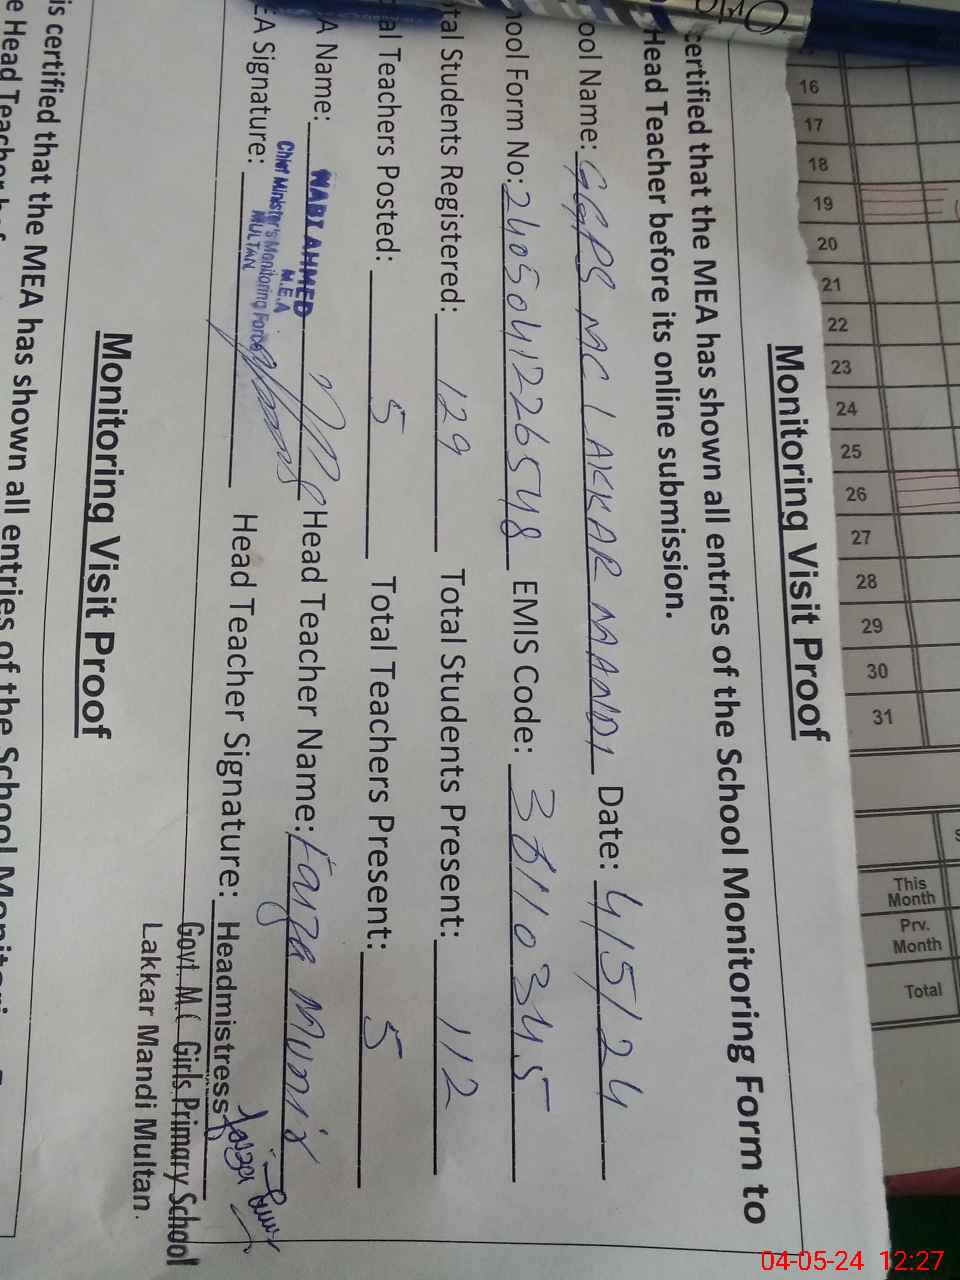 Monitoring Visit Proof
certified that the MEA has shown all entries of the School Monitoring Form to
Head Teacher before its online submission.
ool Name: GGPS MC LAKKAR MANDI Date: 4/5/24
ool Form No: 2405041226548 EMIS Code: 36110345
tal Students Registered: 129 Total Students Present: 112
al Teachers Posted: 5 Total Teachers Present: 5
A Name: Head Teacher Name: Faiza Munir
EA Signature: Head Teacher Signature:
AHMED
M.E.A
Chief Minister's Monitoring Force
MULTAN
Headmistress
Govt. M.C Girls Primary School
Lakkar Mandi Multan.
Monitoring Visit Proof
is certified that the MEA has shown all entries of the School Monitori
e Head Teacher bef
16
17
18
19
20
21
22
23
24
25
26
27
28
29
30
31
This Month
Prv. Month
Total
04-05-24 12:27